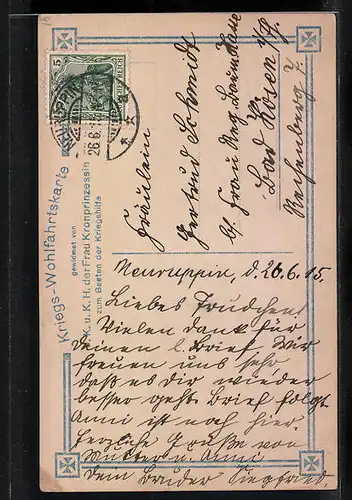 Kriegs-Wohlfahrtskarte
gewidmet von
I. K. u. K. H. der Frau Kronprinzessin
zum Besten der Kriegshilfe
5
NEURUPPIN
26.6.
Fräulein
Gertrud Schmidt
b/ Frau Reg. Baumstr.
Bad Kösen
Neuruppin, d. 26.6.15.
Liebes Trudchen!
Vielen dank für
deinen l. Brief. Wir
freuen uns sehr
daß es dir wieder
besser geht. Brief folgt
Anni ist noch hier.
Herzliche Grüße von
Mutter u. Anni
Dein Bruder Siegfried.